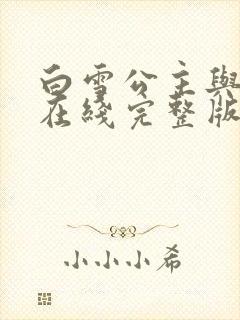 白雪公主與
在綫完整版
小小小希